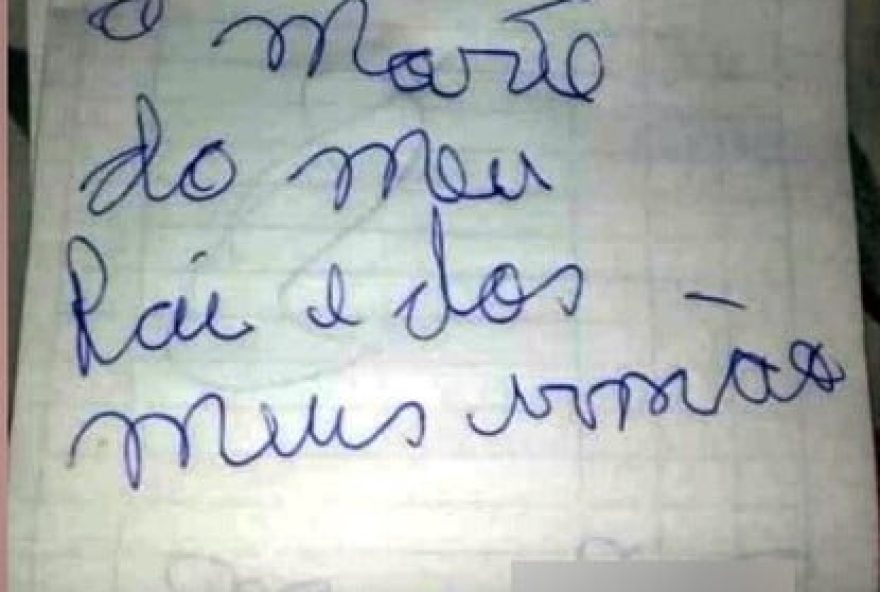 a Morte
do Meu
Pai e dos
Meus irmãos